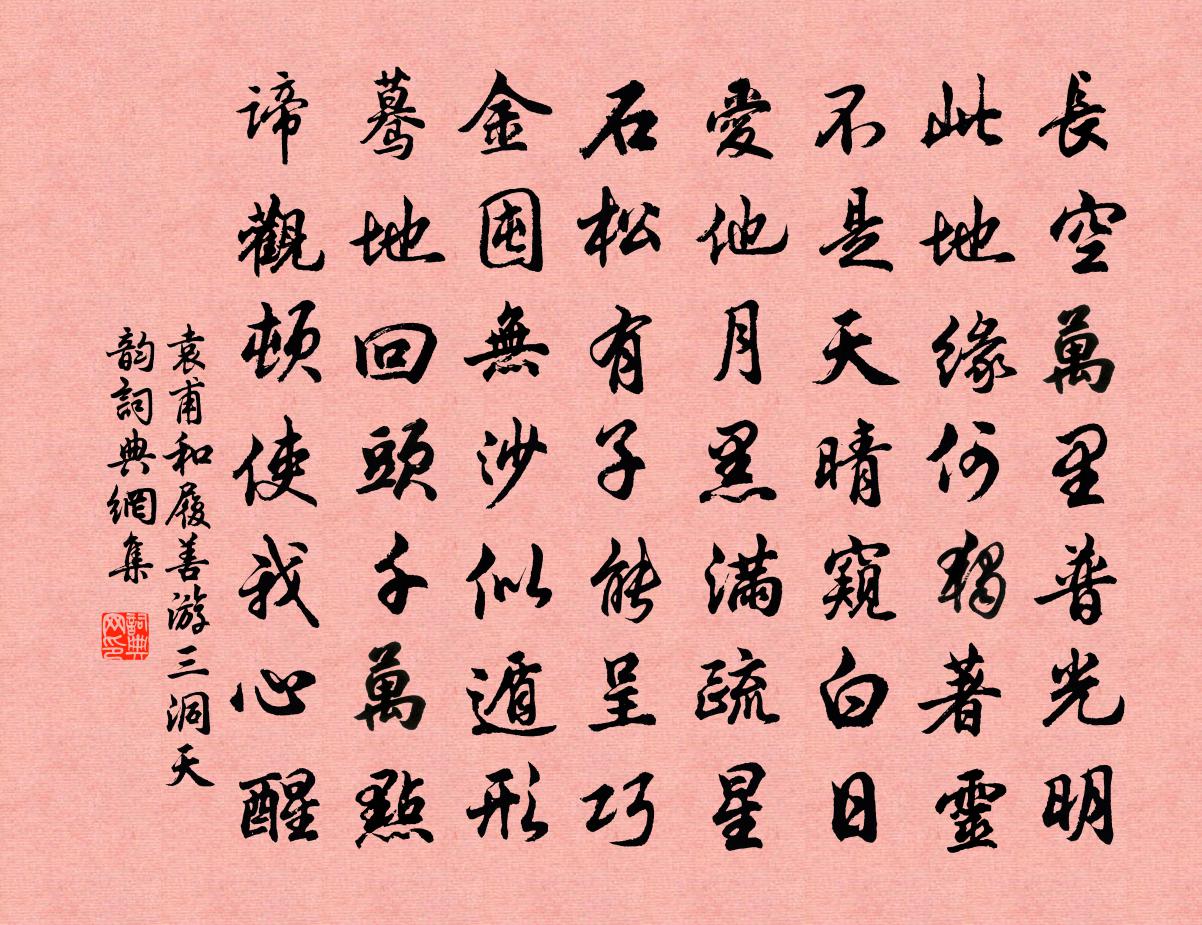 長空萬里普光明
此地緣何獨著靈
不是天晴窺白日
愛他月黑滿疏星
石松有子能呈巧
金囷無沙似遁形
驀地回頭千萬點
諦觀頓使我心醒
袁甫和履善游三洞天
韵詞典網集
詞典网印